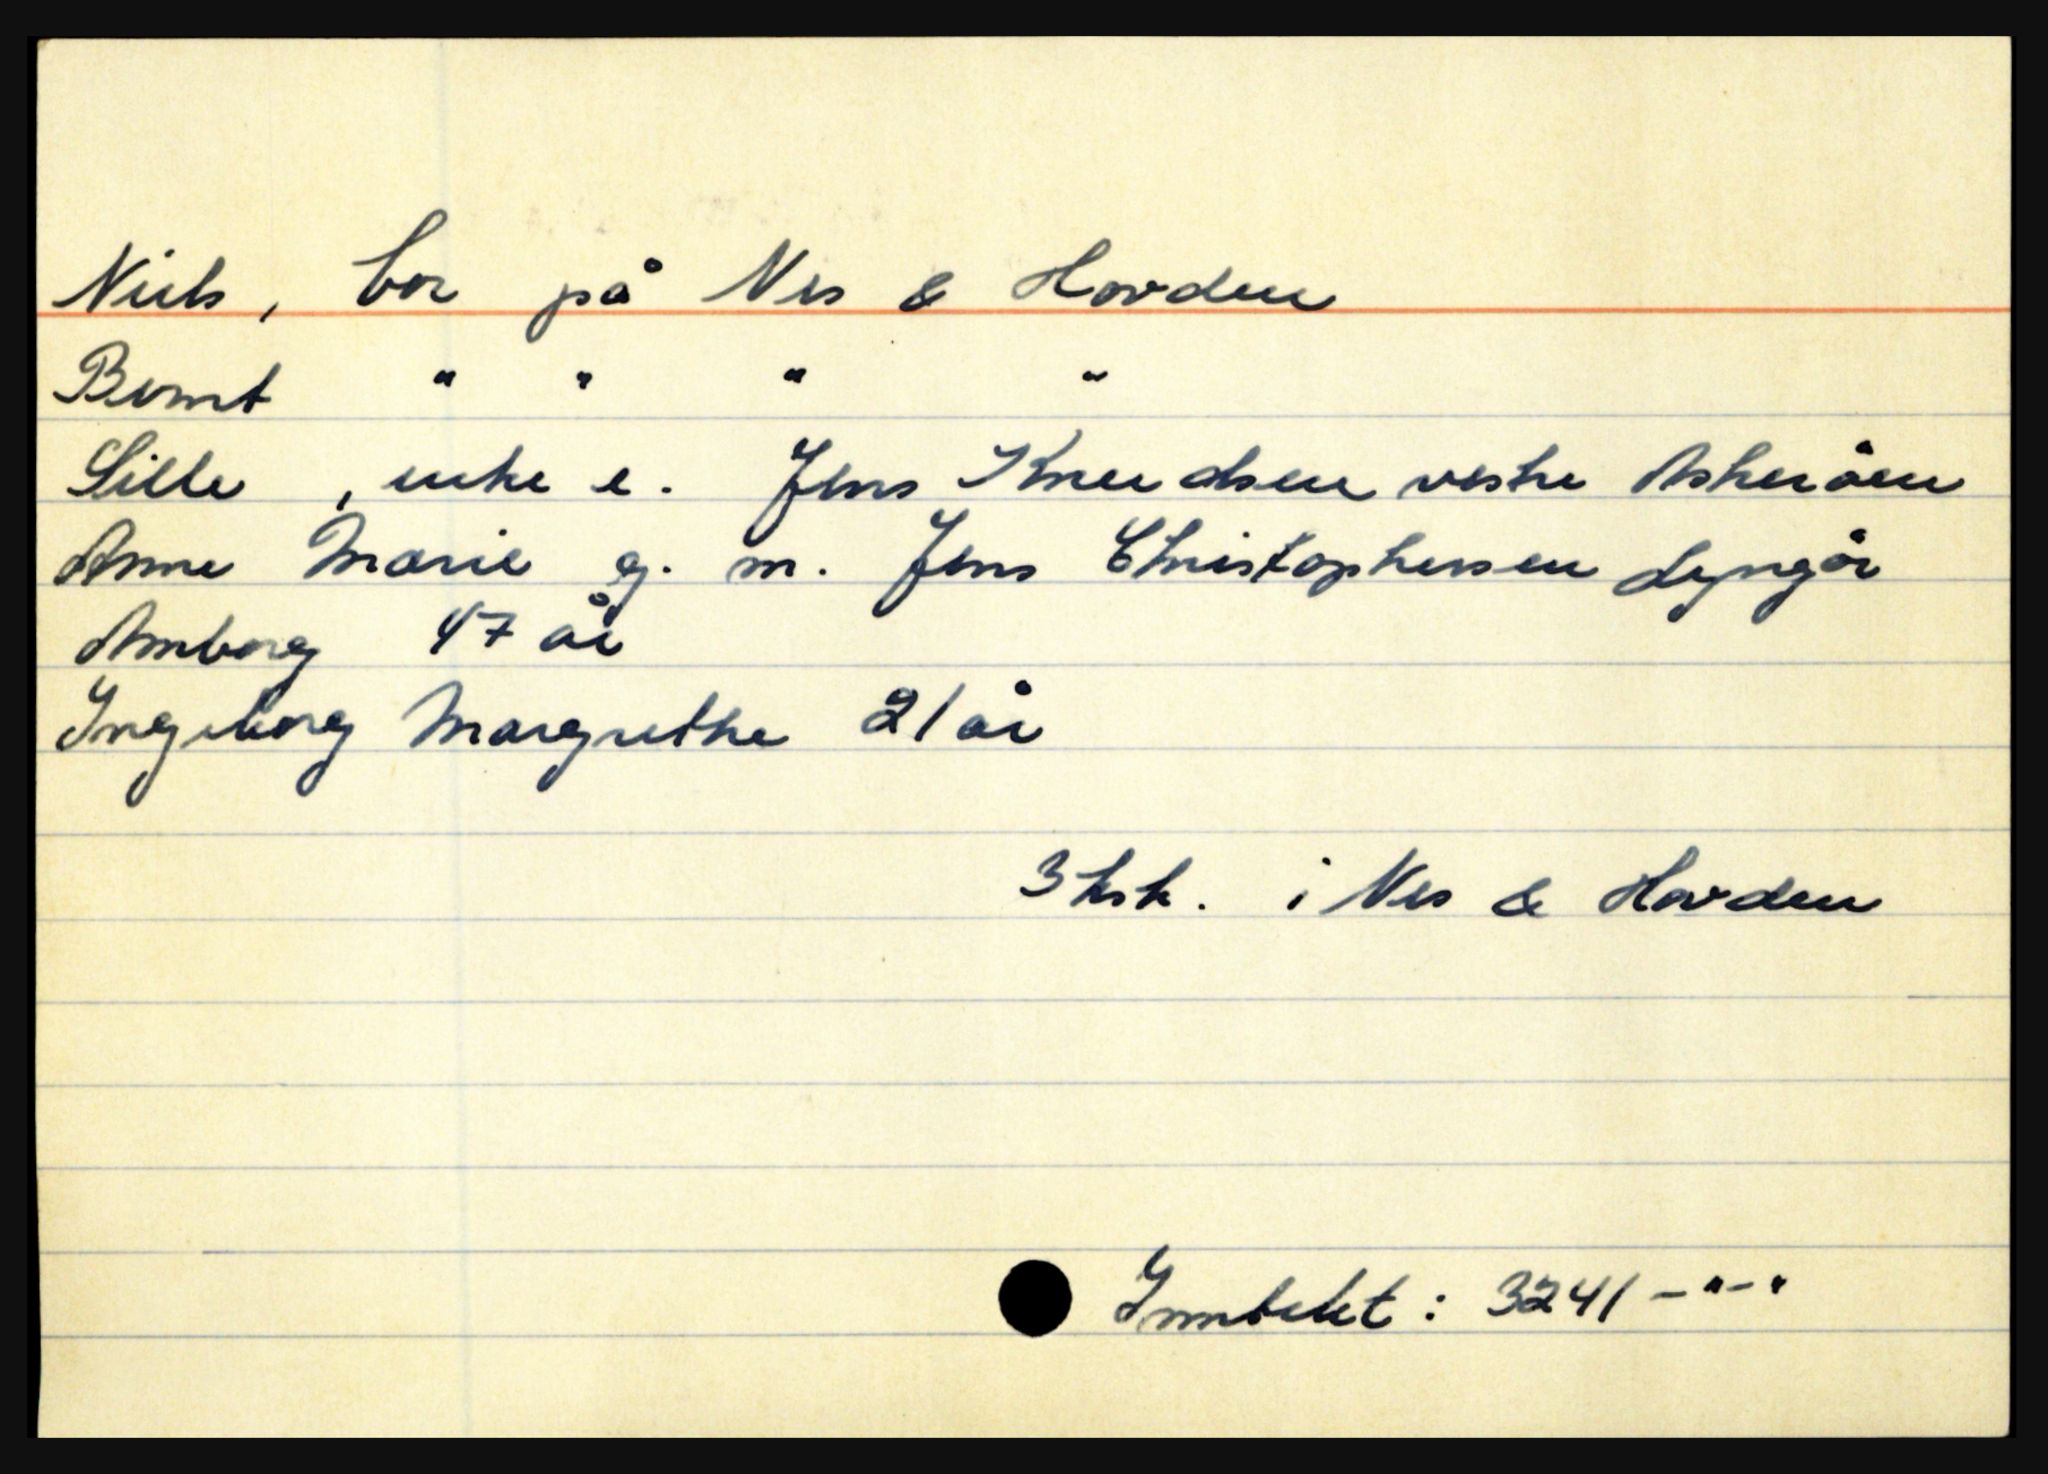 Niels, bor på Nes & Hovden
Bernt " " " "
Sille, enke e. Jens Knudsen vestre Askerøen
Anne Marie g. m. Jens Christophersen Lyngør
Amborg 47 år
Ingeborg Margrethe 21 år
3 hsk. i Nes & Hovden
Inntekt: 3241 - " - "